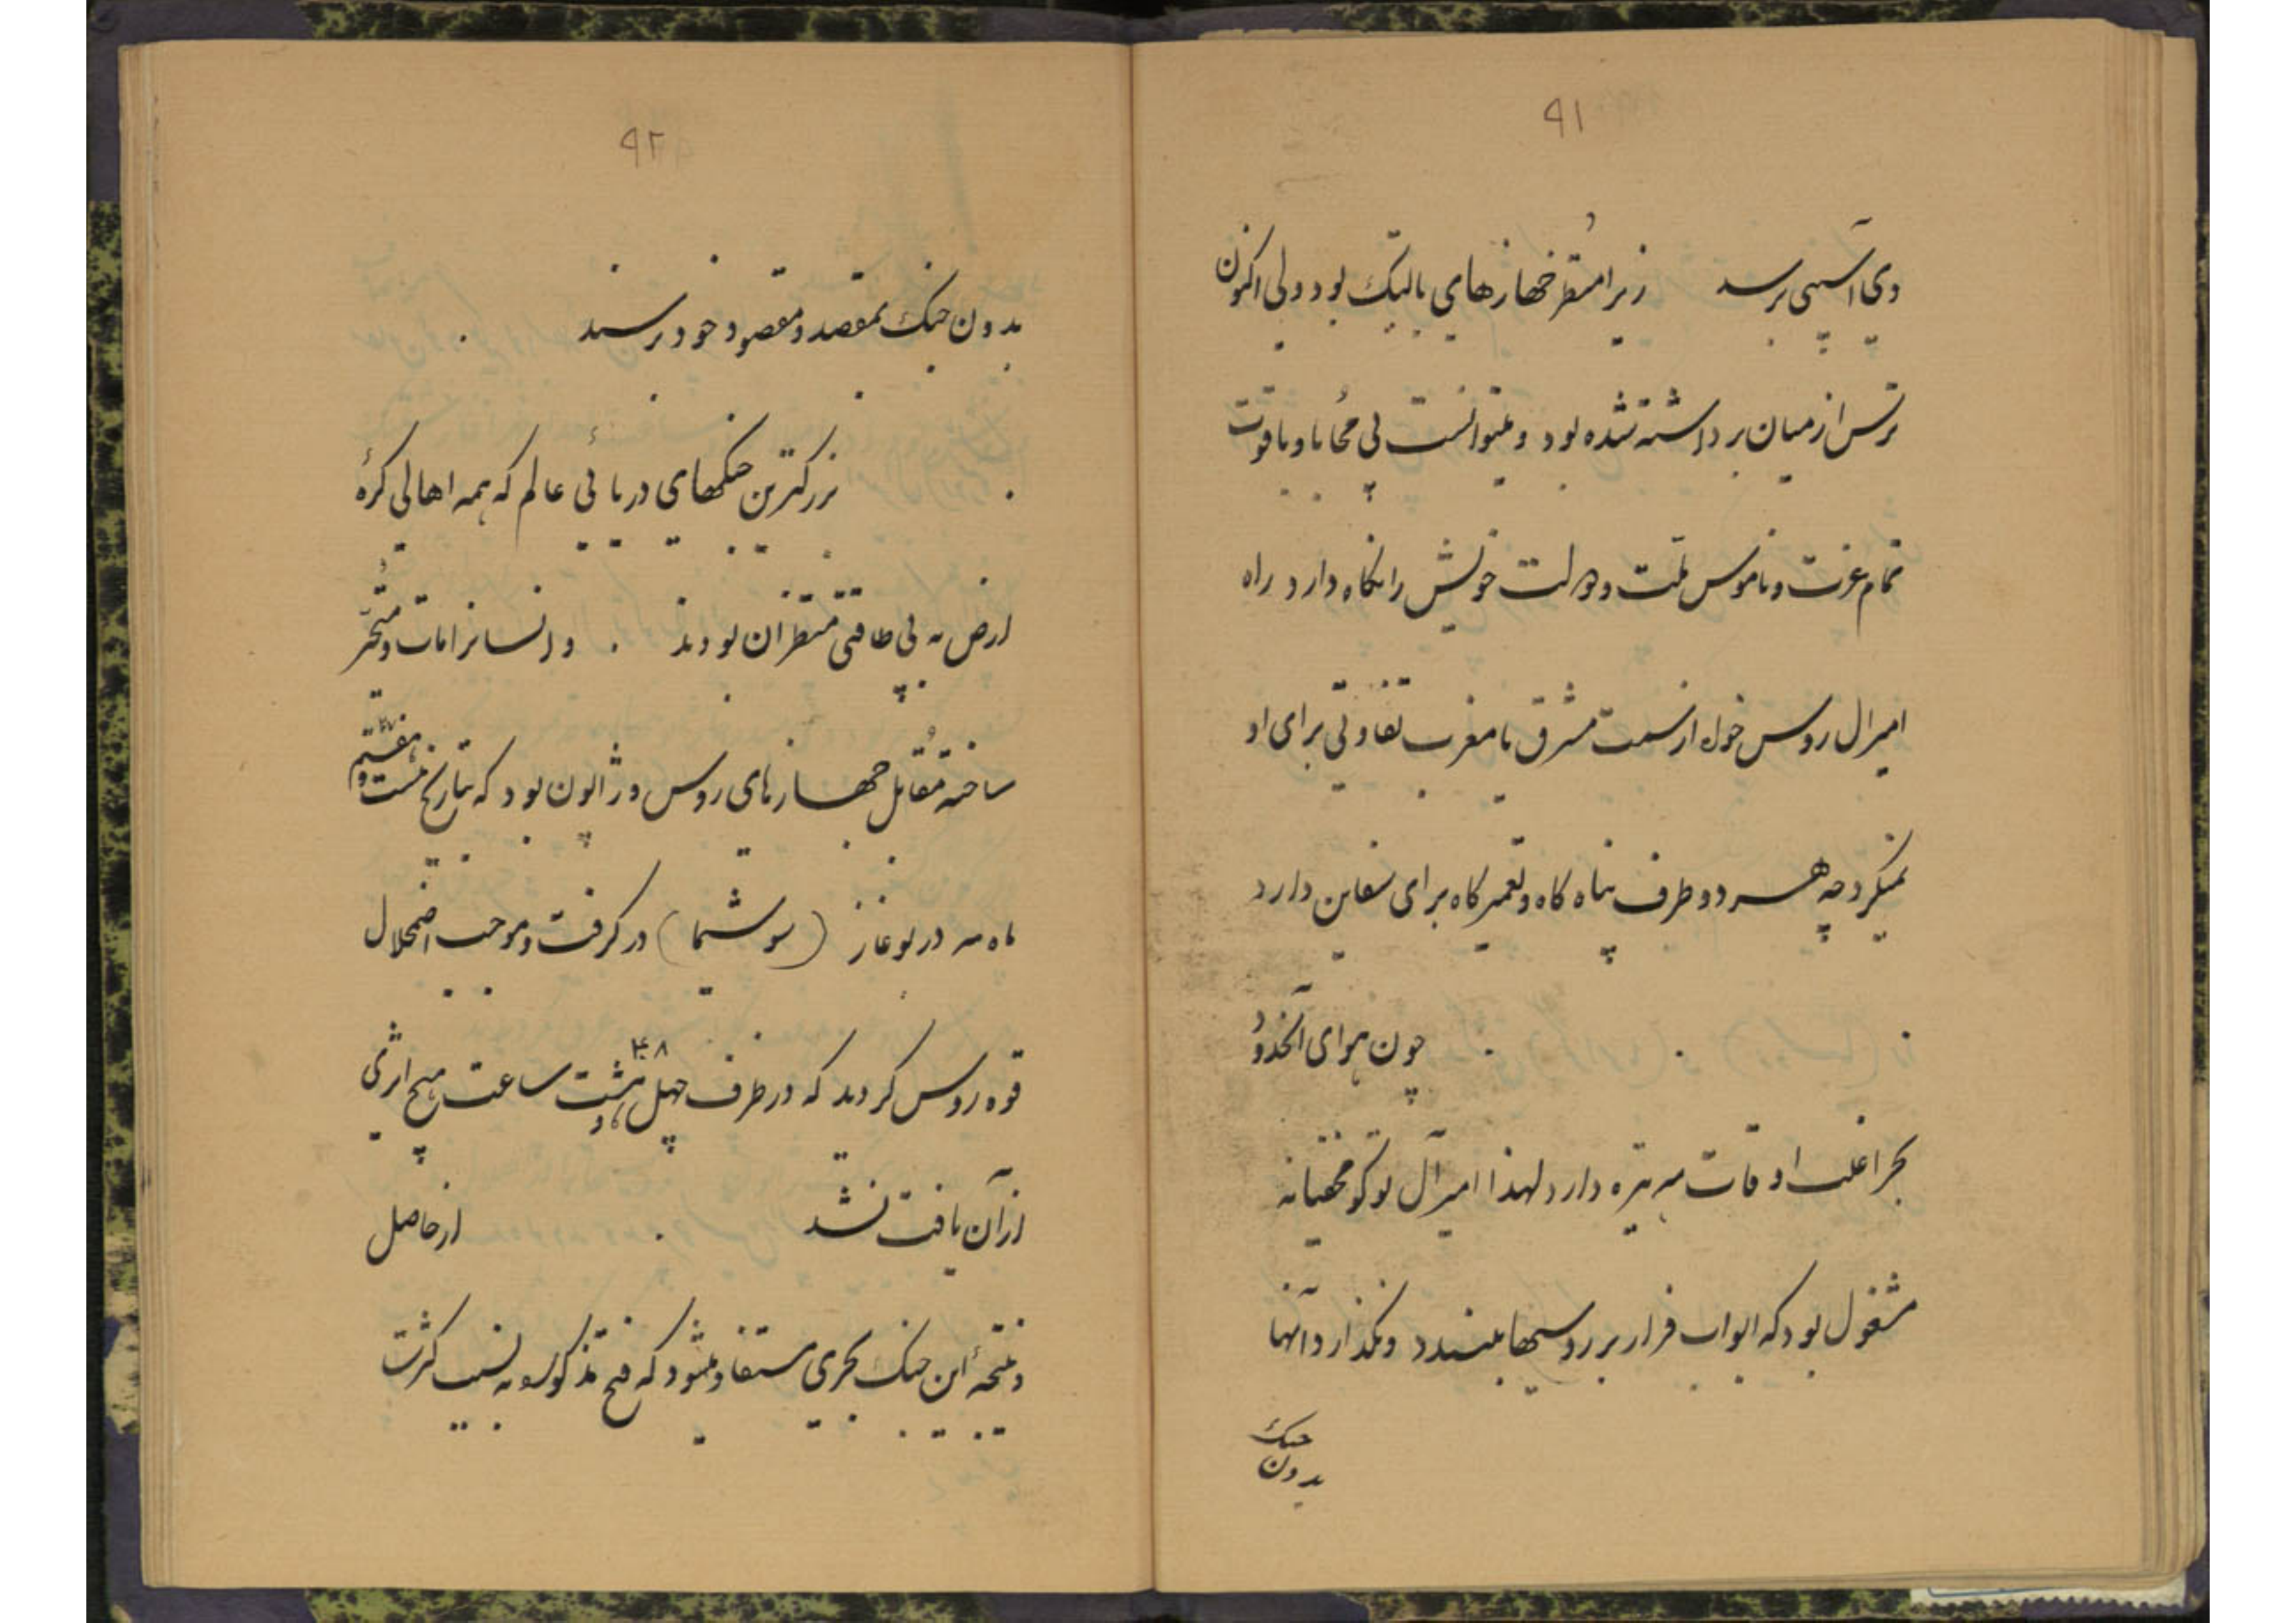 ۹۱
وی آسیبی برسد زیرا منتظر جهازهای بالتیک بود ولی اکنون
ترس از میان برداشته شده بود و میتوانست بی محابا و با قوت
تمام عزت و ناموس ملت و دولت خویش را نگاه دارد راه
امیرال روس خواه از سمت مشرق یا مغرب تفاوتی برای او
نمیکرد چه هر دو طرف پناه گاه و تعمیرگاه برای سفاین دارد
چون هوای آنحدود
بحر اغلب اوقات مه تیره دارد لهذا امیرآل توگو مخفیانه
مشغول بود که ابواب فرار بر روسیها ببندد و نگذارد آنها
بدون جنگ
۹۲
بدون جنگ بمقصد و مقصود خود برسند
بزرگترین جنگهای دریائی عالم که همه اهالی کرهٔ
ارض به بی طاقتی منتظر آن بودند و انسانرا مات و متحیر
ساخته مقابل جهازهای روس و ژاپون بود که بتاریخ بیست و هفتم ۲۷
ماه مه در بوغاز (سوشیما) در گرفت و موجب اضمحلال
قوه روس گردید که در ظرف چهل و هشت ۴۸ ساعت هیچ اثری
از آن یافت نشد از حاصل
و نتیجهٔ این جنگ بحری مستفاد میشود که فتح مذکور به نسبت کثرت